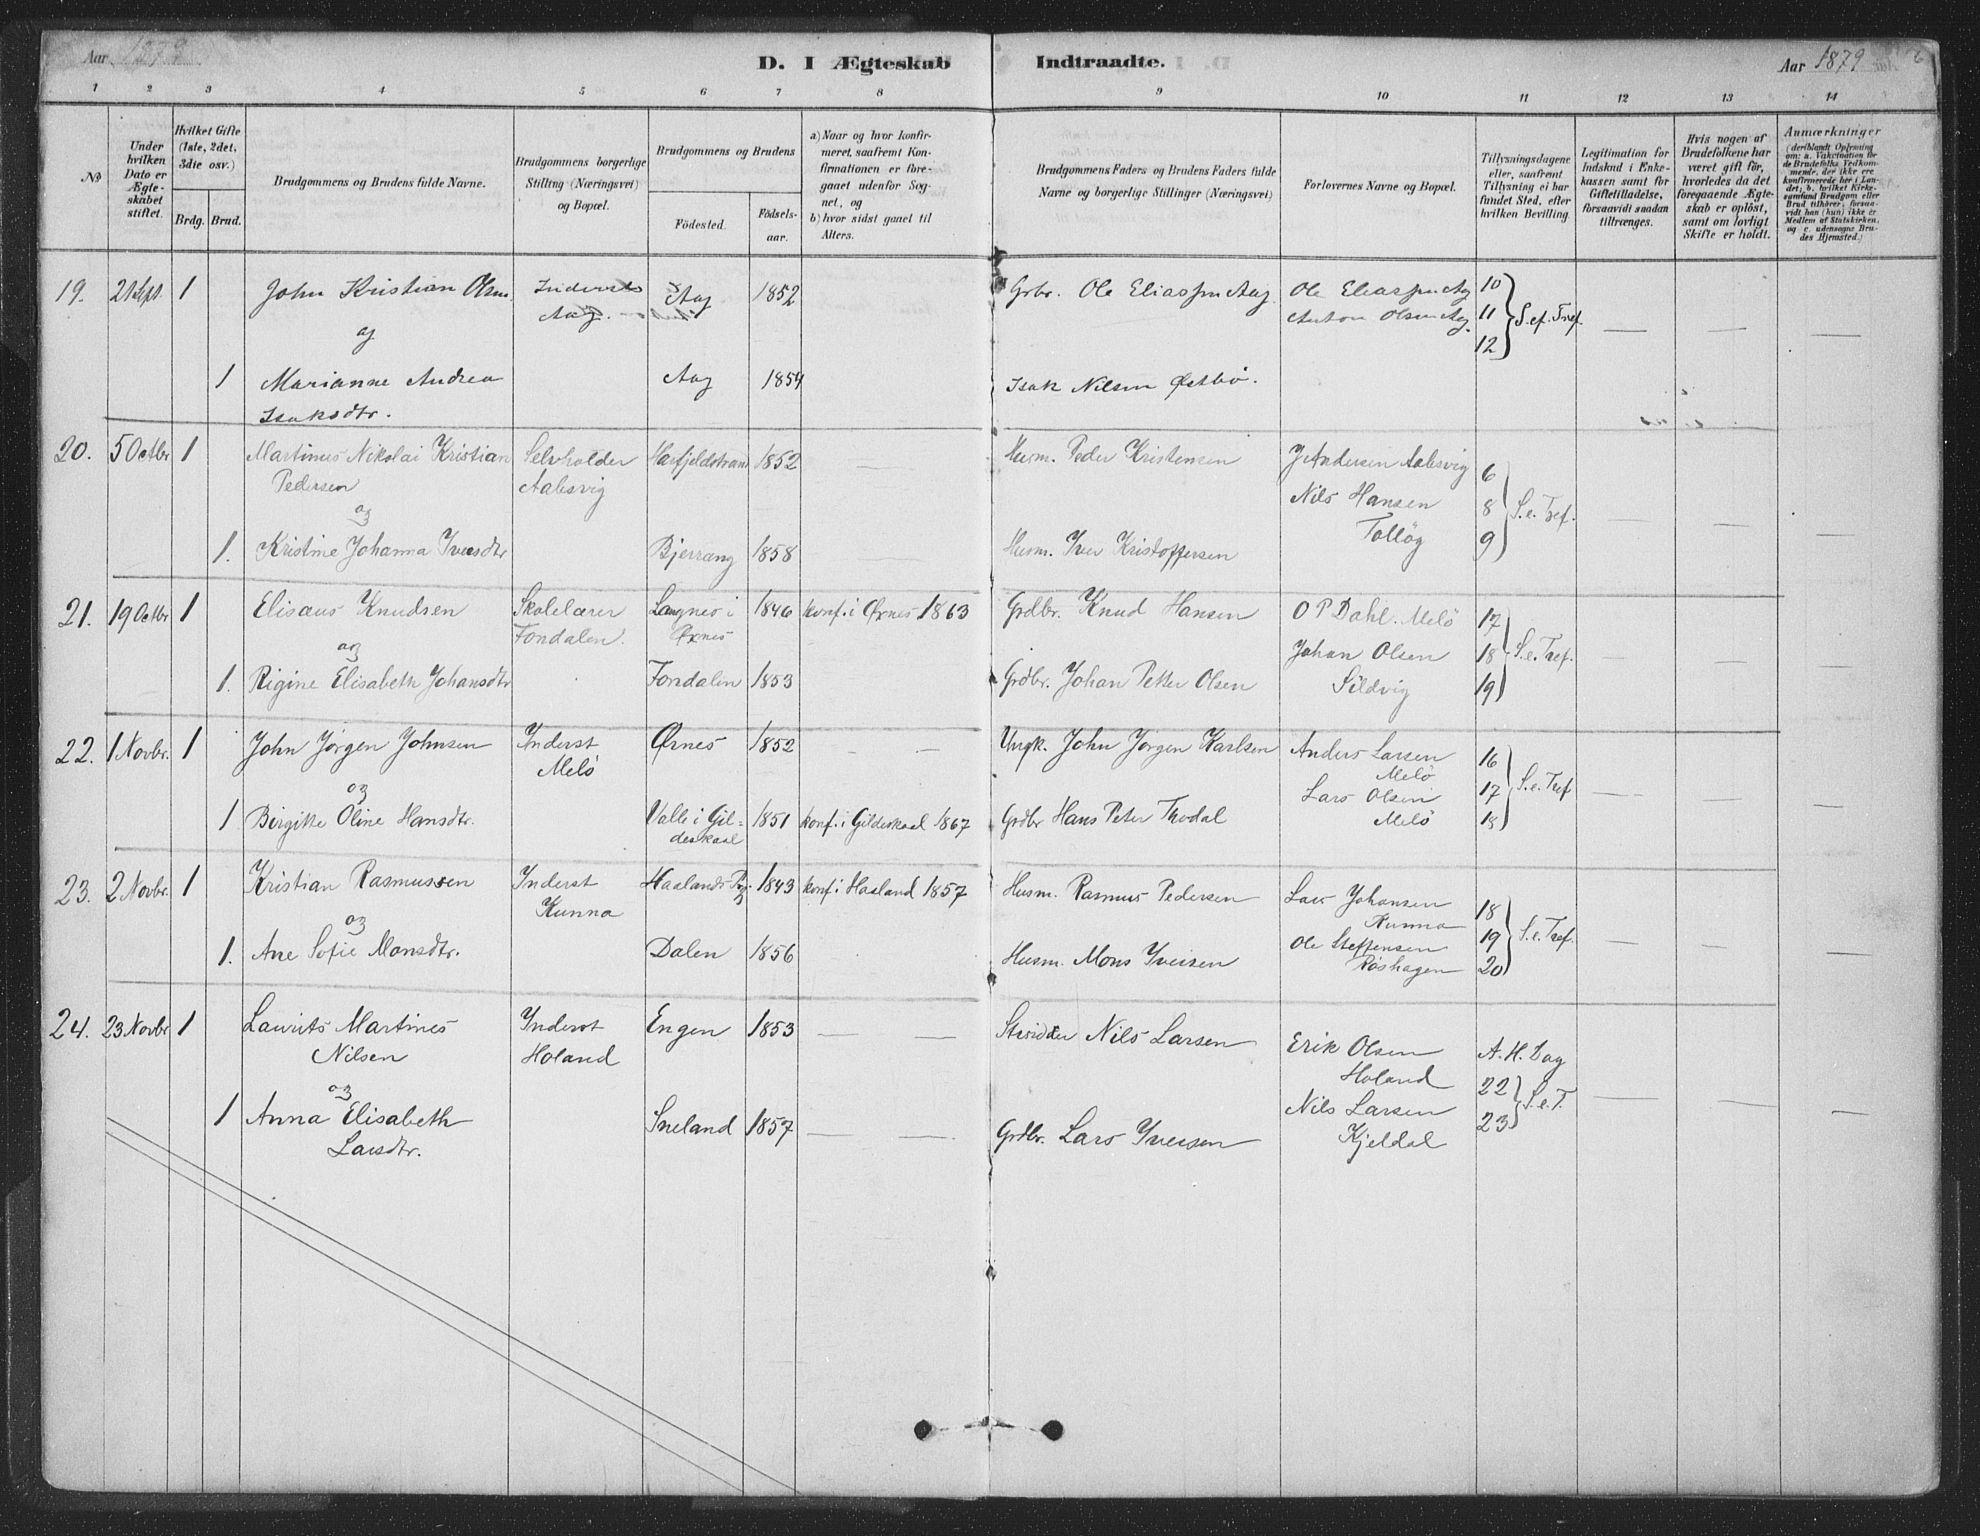 Aar 1879 D. I Ægteskab Indtraadte. Aar 1879 6
1 2 3 4 5 6 7 8 9 10 11 12 13 14
No
Under hvilken Dato er Ægteskabet stiftet.
Hvilket Gifte (1ste, 2det, 3die osv.)
Brdg. Brud.
Brudgommens og Brudens fulde Navne.
Brudgommens borgerlige Stilling (Næringsvei) og Bopæl.
Brudgommens og Brudens
Födested. Födsels-aar.
a) Naar og hvor konfirmeret, saafremt Konfirmationen er foregaaet udenfor Sognet, og
b) hvor sidst gaaet til Alters.
Brudgommens Faders og Brudens Faders fulde Navne og borgerlige Stillinger (Næringsvei)
Forlovernes Navne og Bopæl.
Tillysningsdagene eller, saafremt Tillysning ei har fundet Sted, efter hvilken Bevilling.
Legitimation for Indskud i Enkekassen samt for Giftetilladelse, forsaavidt saadan tiltrænges.
Hvis nogen af Brudefolkene har været gift för, hvorledes da det foregaaende Ægteskab er oplöst, samt om lovligt Skifte er holdt.
Anmærkninger (deriblandt Oplysning om: a. Vakcination for de Brudefolks Vedkommende, der ikke ere konfirmerede her i Landet; b. hvilket Kirkesamfund Brudgom eller Brud tilhörer, forsaavidt han (hun) ikke er Medlem af Statskirken, og c. udensogns Brudes Hjemsted.)
19. 21 Sept. 1 John Kristian Olsen Inderst Aag 1852 Grbr. Ole Eliassen Aag Ole Eliassen Aag 10
Aag. Anton Olsen Aag. 11 S. ef. Tref.
og 12
1 Marianne Andrea Aag 1854 Isak Nilsen Østbø.
Isaksdtr.
20. 5 Octbr 1 Martinus Nikolai Kristian Selvholder Havfjeldstrand 1852 Husm. Peder Kristensen J Andersen Aalesvig 6
Pedersen Aalesvig Nils Hansen 8 S. e. Tref.
og Tollög 9
1. Kristine Johanna Iversdtr Bjerrang 1858 Husm. Iver Kristoffersen
21. 19 Octbr 1 Elisæus Knudsen Skolelærer Langnes i 1846 konf. i Ørnes 1863 Grdbr. Knud Hansen O P Dahl. Melö 17
Fondalen. Ørnes Johan Olsen 18 S. e. Tref.
og
1. Rigine Elisabeth Johansdtr Fondalen 1853 Grdbr. Johan Petter Olsen Sildvig 19
22. 1 Novbr. 1 John Jørgen Johnsen Inderst Ørnes 1852 Ungk. John Jørgen Karlsen Anders Larsen 16
Melö Melö
og Lars Olsen 17 S. e. Tref
1 Birgitte Oline Hansdtr. Valle i Gil- 1851 konf. i Gildeskaal 1867 Grdbr Hans Peter Thodal Melö 18
deskaal
23. 2 Novbr. 1 Kristian Rasmussen Inderst Haalands Pg. 1843 konf. i Haaland 1857 Husm. Rasmus Pedersen Lars Johansen 18
Kunna Kunna
og Ole Steffensen 19 S. e. Tref.
1. Ane Sofie Monsdtr. Dalen 1856 Husm. Mons Iversen Röshagen 20
24. 23 Novbr 1 Laurits Martines Inderst Engen 1853 Nils Larsen Erik Olsen A. H. Dag
Nilsen Holand Holand 22
og Nils Larsen S. e. T.
1 Anna Elisabeth Sneland 1857 Grdbr. Lars Iversen Kjeldal 23
Larsdtr.